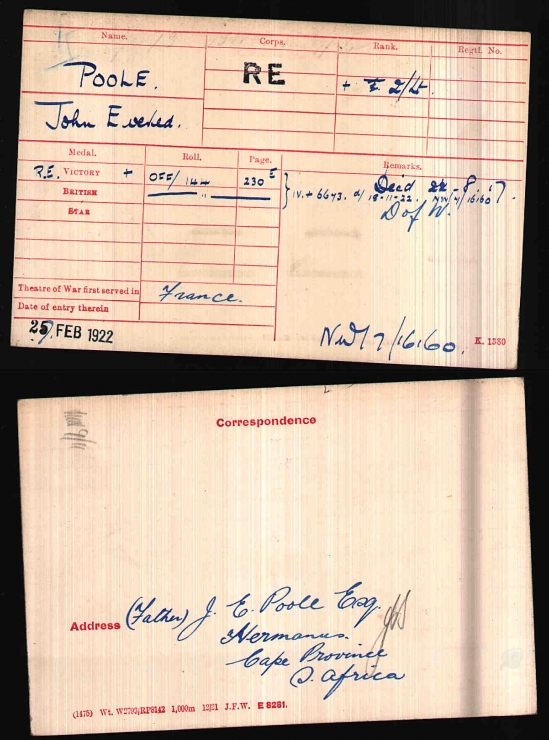 Name.
Corps.
Rank.
Regtl. No.
POOLE.
RE
+ T 2/Lt.
John Evered.
Medal.
Roll.
Page.
Remarks.
R.E. VICTORY +
OFF/144
230 E
BRITISH
"
STAR
Died 22-8-17.
IV.+ 6673. d/ 18-11-22. NW/7/16160
D of W.
Theatre of War first served in
France.
Date of entry therein
25 FEB 1922
NW/7/16160.
K. 1380
Correspondence
Address (Father) J. E. Poole Esq.
Hermanus.
Cape Province
S. Africa
(1475) Wt. W2793/RP8142 1,000m 12/21 J.F.W. E 8281.